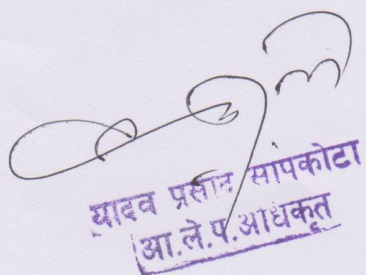 यादव प्रसाद सापकोटा
आ.ले.प.अधिकृत